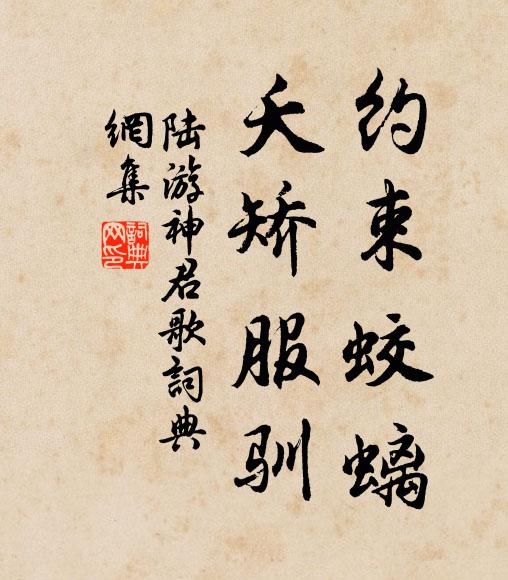 约束蛟螭
夭矫服驯
陆游神君歌詞典
網集
詞典
网印